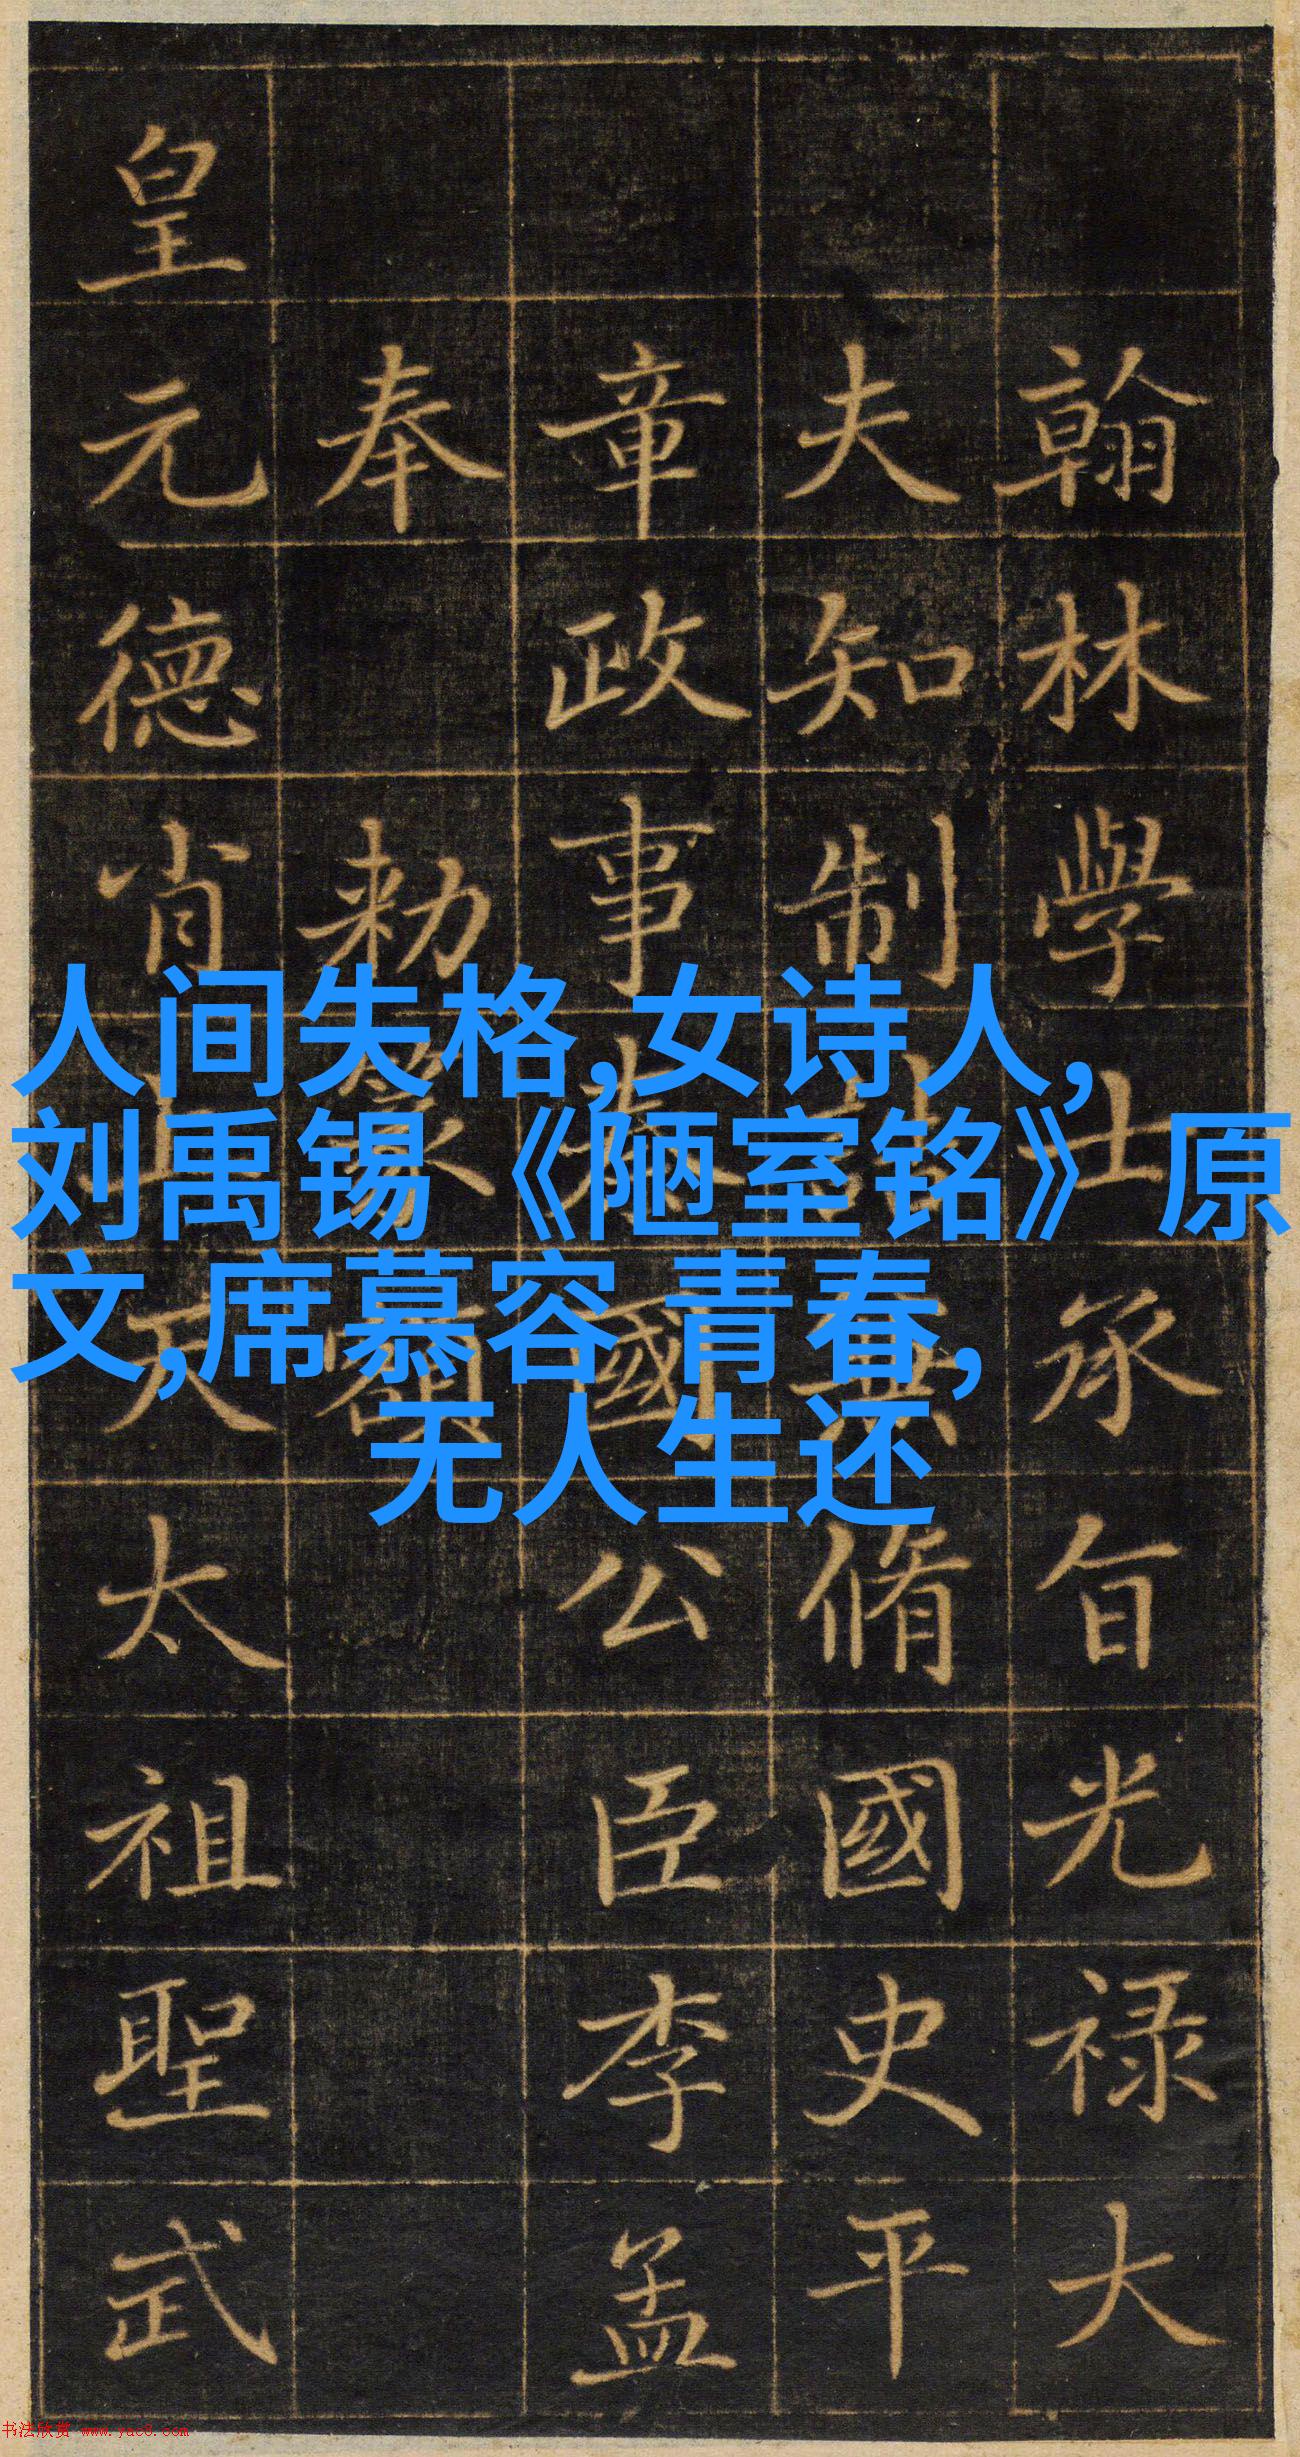 翰林學士承旨光禄大
夫知制誥兼脩國史平
章政事秦國公臣李孟
奉 勅篆額
皇元德肖上天太祖聖武
人间失格,女诗人,
刘禹锡《陋室铭》原
文,席慕容 青春,
无人生还
书法欣赏 www.yac8.com